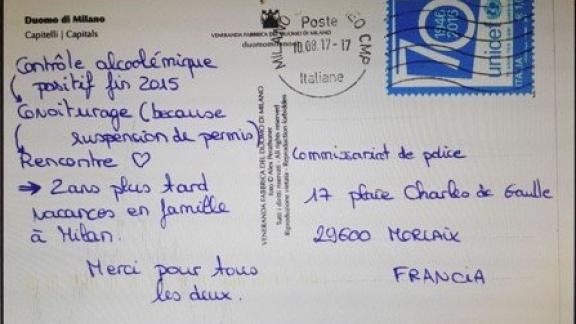 Duomo di Milano
Capitelli | Capitals
VENERANDA FABBRICA DEL DUOMO DI MILANO
duomomilano.it
Contrôle alcoolémique
positif fin 2015
Covoiturage (because
suspension de permis)
Rencontre ♡
→ 2 ans plus tard
vacances en famille
à Milan.
Merci pour tous
les deux.
VENERANDA FABBRICA DEL DUOMO DI MILANO
Tutti i diritti riservati - All rights reserved
Riproduzione vietata - Reproduction forbidden
MILANO
CMP
Poste
10.08.17-17
Italiane
70
1946
2016
unicef
ITALIA
Commissariat de police
17 place Charles de Gaulle
29600 MORLAIX
FRANCIA